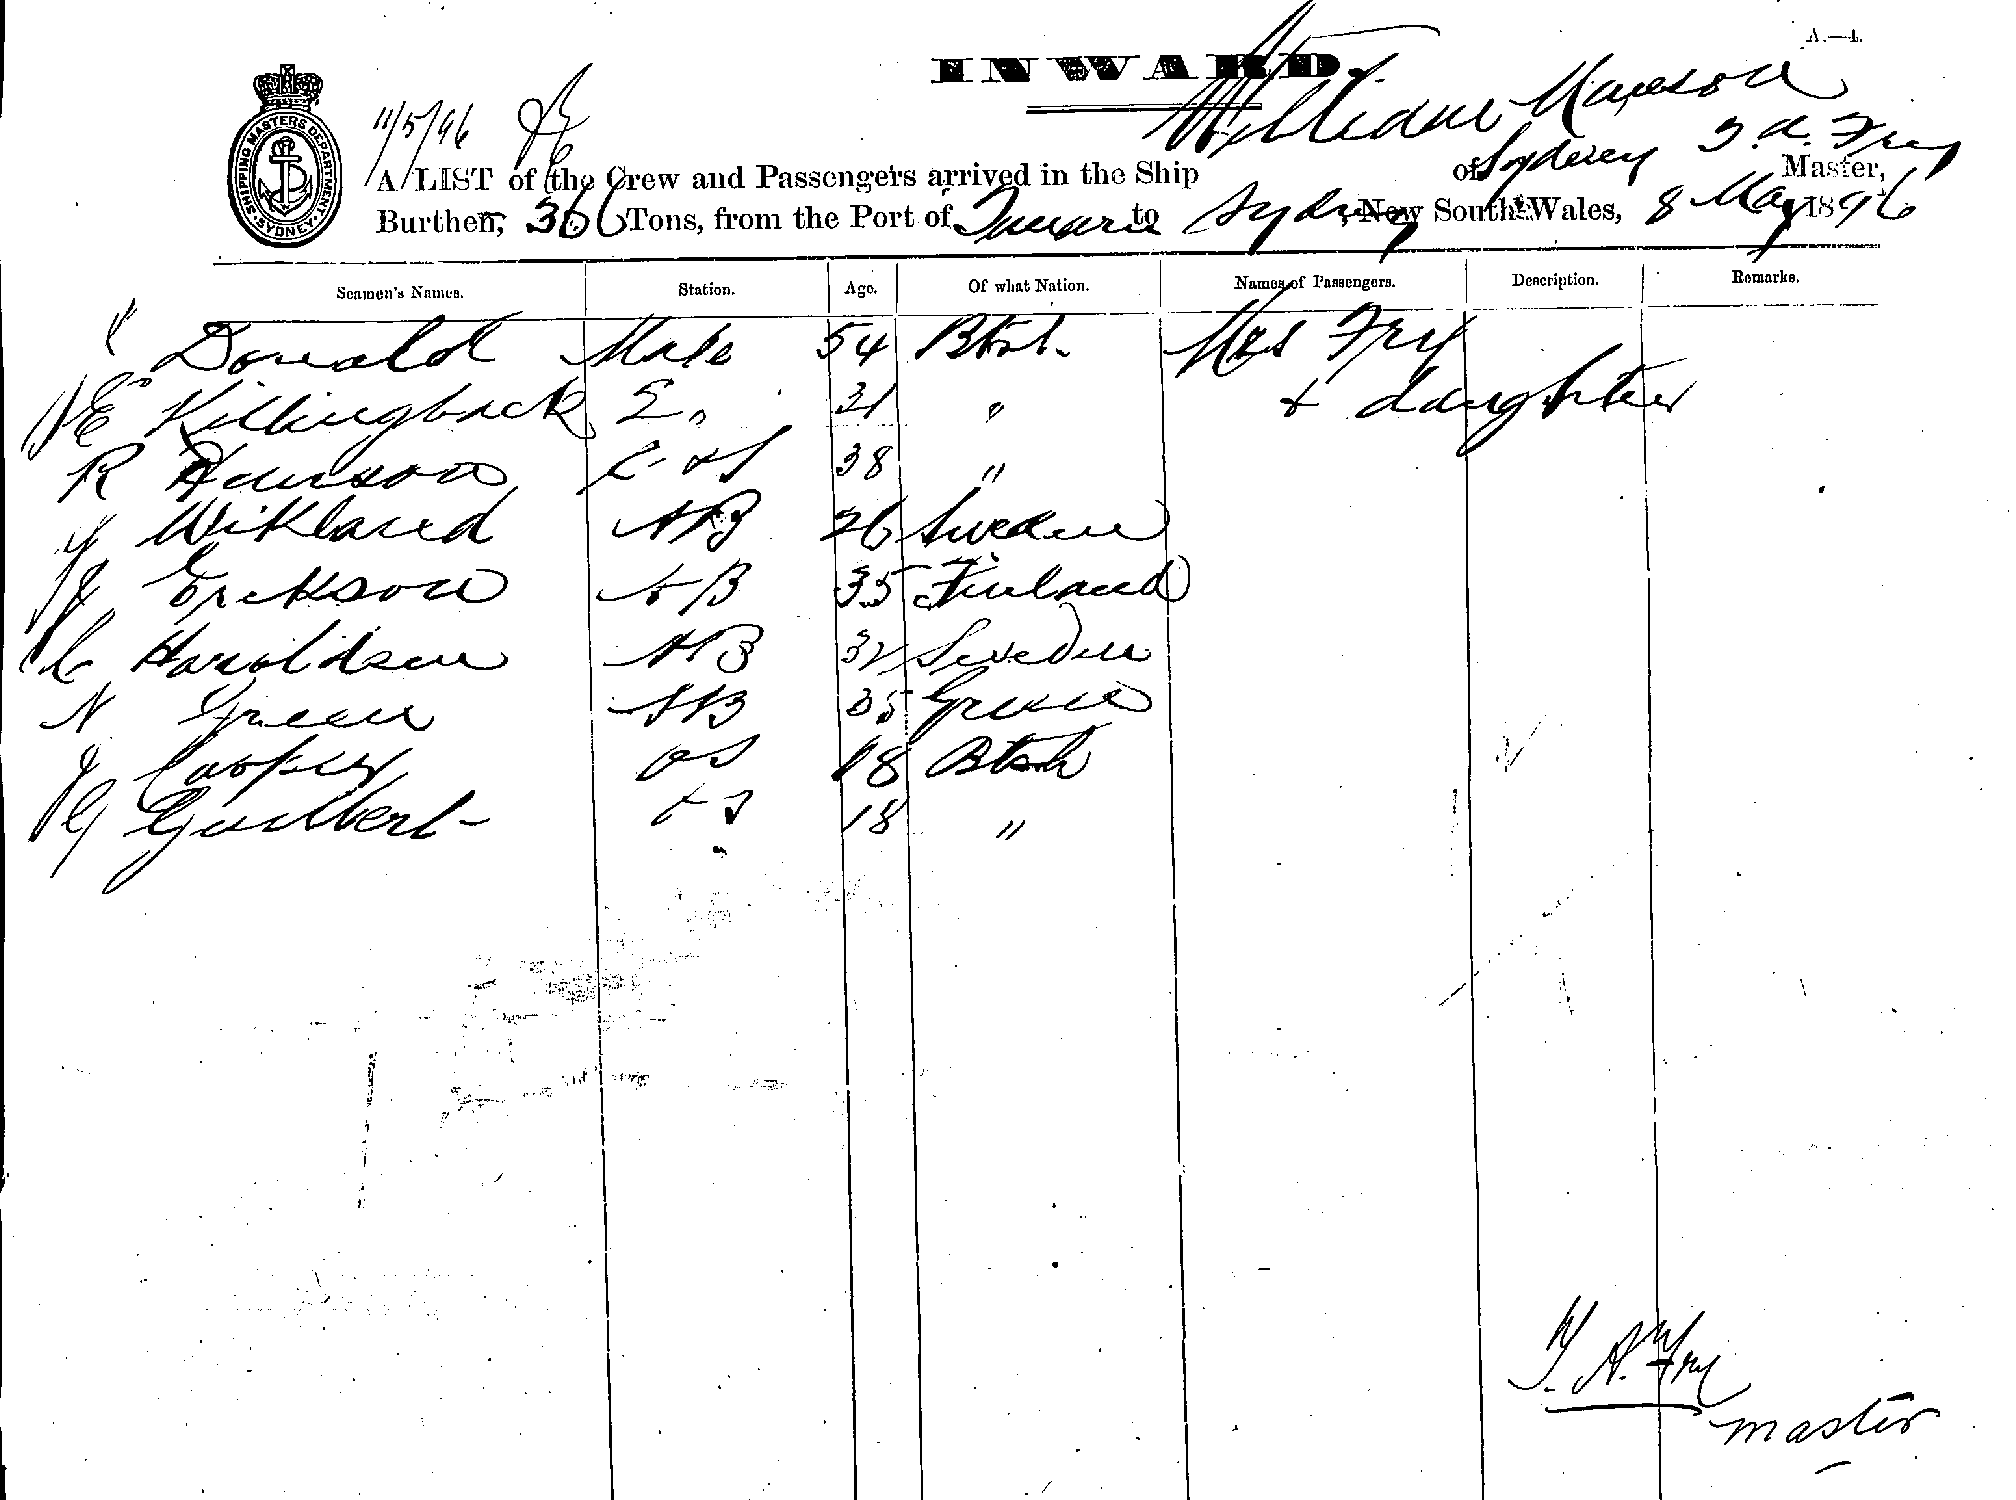 A.—4.
INWARD.
SHIPPING MASTERS DEPARTMENT SYDNEY
11/5/96
A LIST of the Crew and Passengers arrived in the Ship William Manson of Sydney T. A. Fry Master,
Burthen, 366 Tons, from the Port of to Sydney, New South Wales, 8 May 1896
Seamen's Names. Station. Age. Of what Nation. Names of Passengers. Description. Remarks.
Donald Mate 54 Btsh. Mrs Fry
E Killingback 2, 21 " + daughter
R C & S 38 "
Wikland AB 26 Sweden
Erikson AB 35 Finland
C Haroldsen AB 32 Sweden
N Green AB 35 Greece
J Cooper OS 18 Btsh
G Guilbert OS 18 "
T. A. Fry
master